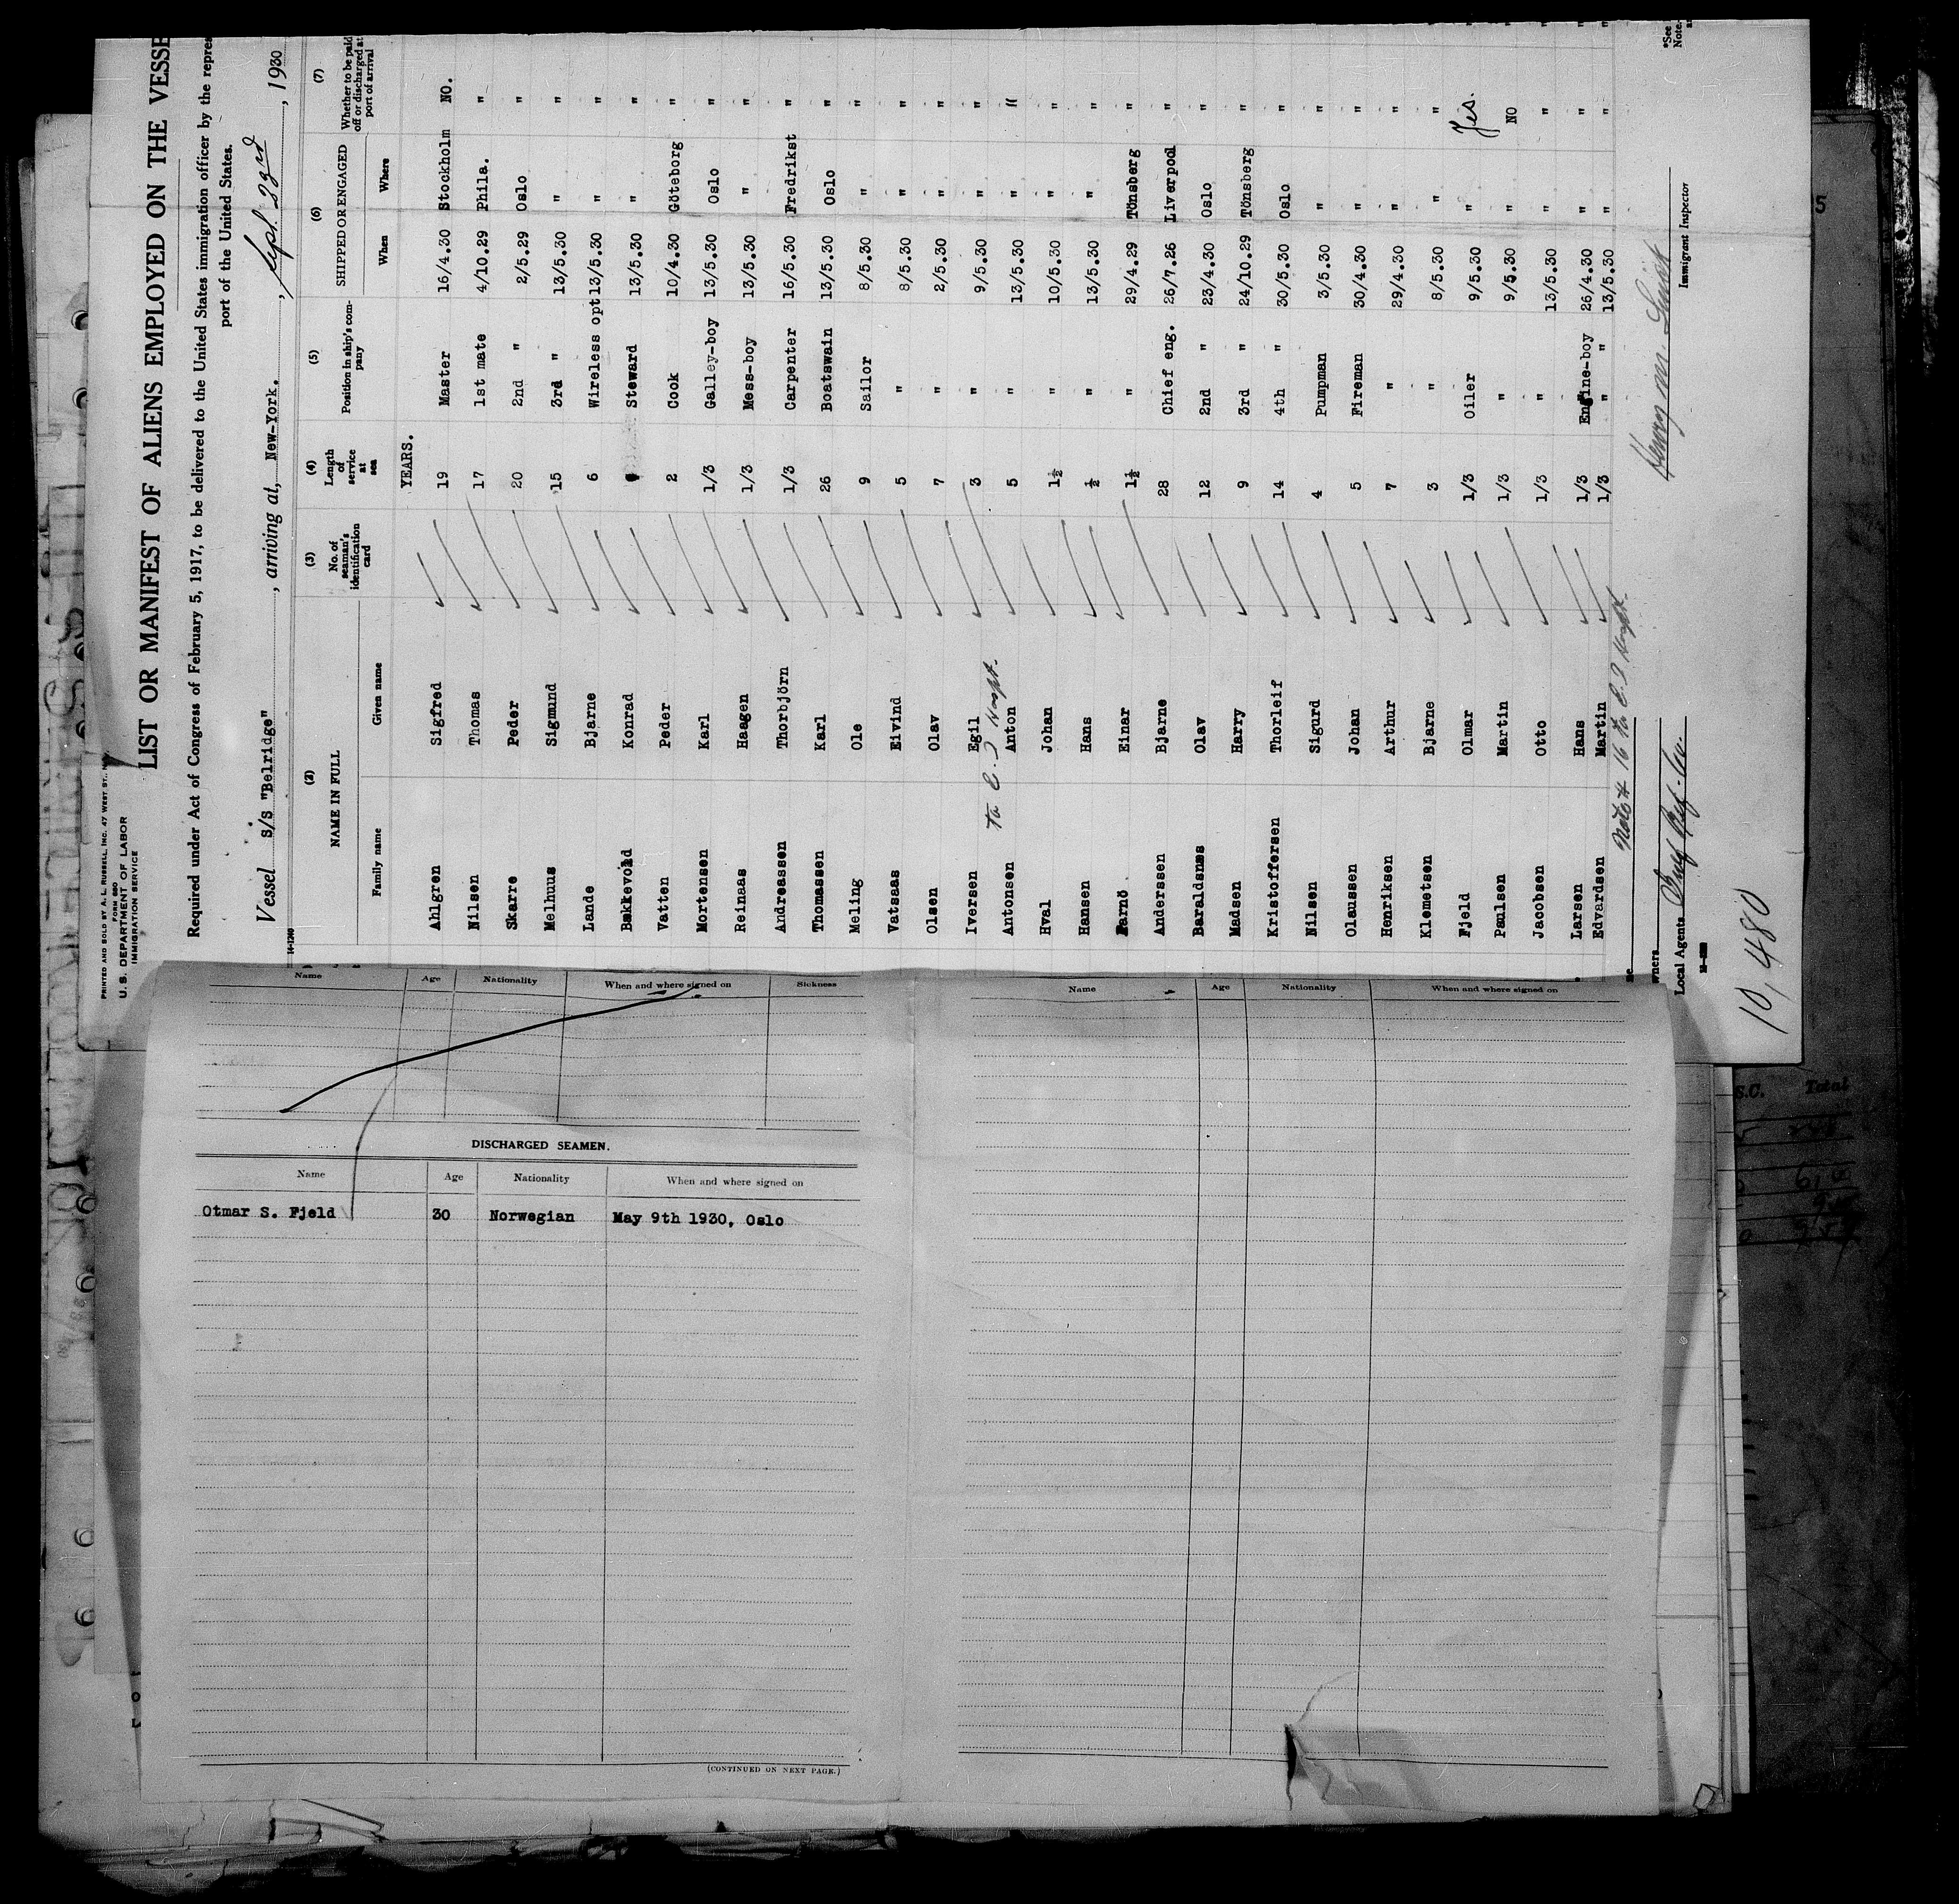 PRINTED AND SOLD BY A. L. RUSSELL, INC. 47 WEST ST.,
FORM 680
U. S. DEPARTMENT OF LABOR
IMMIGRATION SERVICE
LIST OR MANIFEST OF ALIENS EMPLOYED ON THE VESSE
Required under Act of Congress of February 5, 1917, to be delivered to the United States immigration officer by the repres
port of the United States.
Vessel S/S "Belridge", arriving at, New-York., Sept. 23rd, 1930
14-1240
(2) (3) (4) (5) (6) (7)
NAME IN FULL
Family name Given name
No. of seaman's identification card
Length of service at sea
Position in ship's company
SHIPPED OR ENGAGED
When Where
Whether to be paid off or discharged at port of arrival
YEARS.
Ahlgren Sigfred 19 Master 16/4.30 Stockholm NO.
Nilsen Thomas 17 1st mate 4/10.29 Phila. "
Skarre Peder 20 2nd " 2/5.29 Oslo "
Melhuus Sigmund 15 3rd " 13/5.30 " "
Lande Bjarne 6 Wireless opt 13/5.30 " "
Bakkevold Konrad Steward 13/5.30 " "
Vatten Peder 2 Cook 10/4.30 Göteborg "
Mortensen Karl 1/3 Galley-boy 13/5.30 Oslo "
Reinaas Haagen 1/3 Mess-boy 13/5.30 " "
Andreassen Thorbjörn 1/3 Carpenter 16/5.30 Fredrikst "
Thomassen Karl 26 Boatswain 13/5.30 Oslo "
Meling Ole 9 Sailor 8/5.30 " "
Vatsaas Eivind 5 " 8/5.30 " "
Olsen Olav 7 " 2/5.30 " "
Iversen Egil 3 " 9/5.30 " "
To E. I Hospt.
Antonsen Anton 5 " 13/5.30 " "
Hval Johan 1½ " 10/5.30 " "
Hansen Hans ½ " 13/5.30 " "
Farnö Einar 1½ " 29/4.29 Tönsberg "
Anderssen Bjarne 28 Chief eng. 26/7.26 Liverpool "
Baraldsnes Olav 12 2nd " 23/4.30 Oslo "
Madsen Harry 9 3rd " 24/10.29 Tönsberg "
Kristoffersen Thorleif 14 4th " 30/5.30 Oslo "
Nilsen Sigurd 4 Pumpman 3/5.30 " "
Olaussen Johan 5 Fireman 30/4.30 " "
Henriksen Arthur 7 " 29/4.30 " "
Klemetsen Bjarne 3 " 8/5.30 " "
Fjeld Olmar 1/3 Oiler 9/5.30 " Yes.
Paulsen Martin 1/3 " 9/5.30 " NO
Jacobsen Otto 1/3 " 13/5.30 " "
Larsen Hans 1/3 Engine-boy 26/4.30 " "
Edvardsen Martin 1/3 " " 13/5.30 " "
Note # 16 to E. I Hospt.
Henry M.
Immigrant Inspector
wners
Local Agents
*See
Note.
10,480
Name Age Nationality When and where signed on Sickness
DISCHARGED SEAMEN.
Name Age Nationality When and where signed on
Otmar S. Fjeld 30 Norwegian May 9th 1930, Oslo
(CONTINUED ON NEXT PAGE.)
Name Age Nationality When and where signed on
S.C. Total